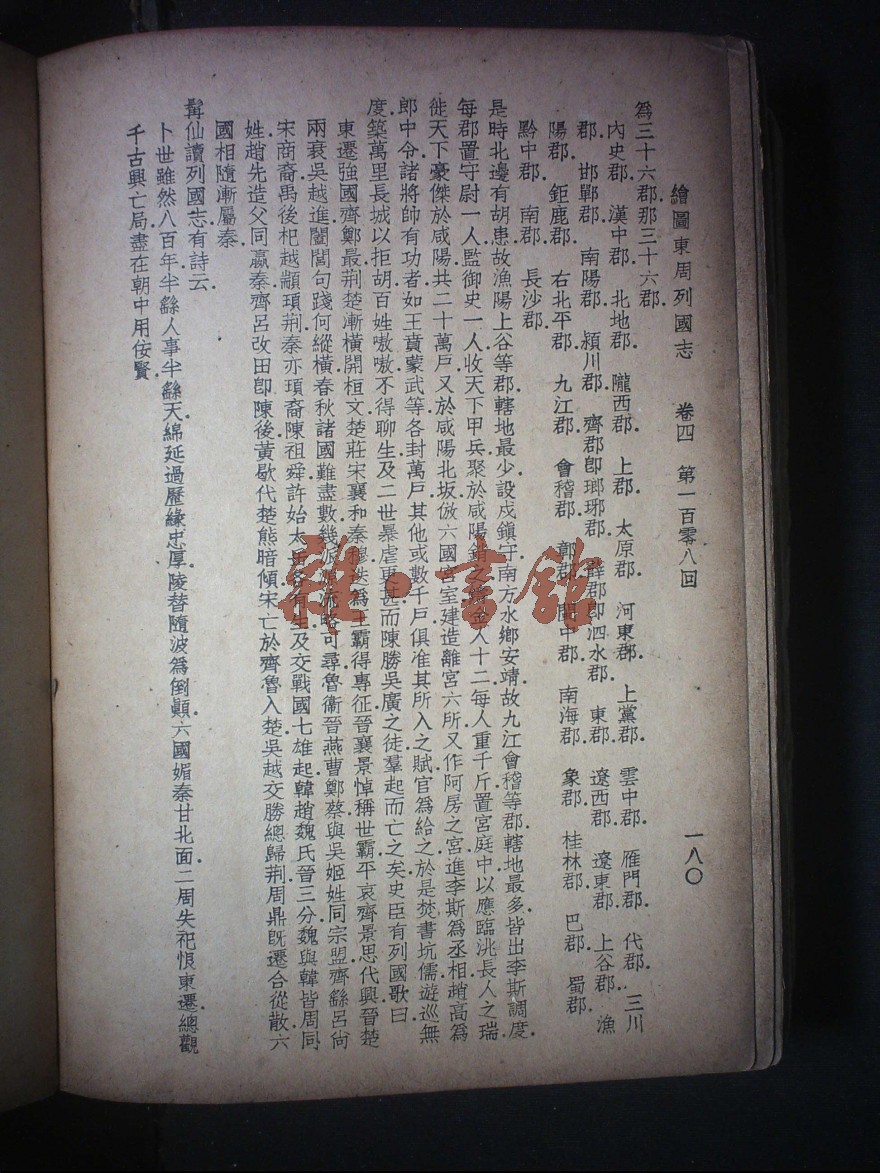 繪圖東周列國志　卷四　第一百零八回　一八〇
爲三十六郡．那三十六郡．
內史郡．漢中郡．北地郡．隴西郡．上郡．太原郡．河東郡．上黨郡．雲中郡．雁門郡．代郡．三川
郡．邯鄲郡．南陽郡．潁川郡．齊郡卽瑯琊郡．薛郡卽泗水郡．東郡．遼西郡．遼東郡．上谷郡．漁
陽郡．鉅鹿郡．右北平郡．九江郡．會稽郡．鄣郡．閩中郡．南海郡．象郡．桂林郡．巴郡．蜀郡．
黔中郡．南郡．長沙郡．
是時北邊有胡患．故漁陽上谷等郡．轄地最少．設戍鎮守．南方水鄉安靖．故九江會稽等郡．轄地最多．皆出李斯調度．
每郡置守尉一人．監御史一人．收天下甲兵．聚於咸陽銷之．金人十二．每人重千斤．置宮庭中．以應臨洮長人之瑞．
徙天下豪傑於咸陽．共二十萬戶．又於咸陽北坂．倣六國宮室．建造離宮六所．又作阿房之宮．進李斯爲丞相．趙高爲
郎中令．諸將帥有功者．如王賁蒙武等．各封萬戶．其他或數千戶．俱准其所入之賦．官爲給之．於是焚書坑儒．遊巡無
度．築萬里長城以拒胡．百姓嗷嗷．不得聊生．及二世暴虐更甚．而陳勝吳廣之徒．羣起而亡之矣．史臣有列國歌曰．
東遷強國齊鄭最．荆楚漸橫開桓文．楚莊宋襄和秦穆．迭爲王霸得專征．晉襄景悼稱世霸．平哀齊景思代興．晉楚
兩衰吳越進．闔閭句踐何縱橫．春秋諸國難盡數．幾派源流略可尋．魯衞晉燕曹鄭蔡．與吳姬姓同宗盟．齊繇呂尙
宋商裔．禹後杞越顓頊荆．秦亦頊裔陳祖舜．許始太岳各有生．及交戰國七雄起．韓趙魏氏晉三分．魏與韓皆周同
姓．趙先造父同嬴秦．齊呂改田卽陳後．黃歇代楚熊暗傾．宋亡於齊魯入楚．吳越交勝總歸荆．周鼎旣遷合從散．六
國相隨漸屬秦．
髯仙讀列國志．有詩云．
卜世雖然八百年．半繇人事半繇天．綿延過歷緣忠厚．陵替隨波爲倒顚．六國媚秦甘北面．二周失祀恨東遷．總觀
千古興亡局．盡在朝中用佞賢．
雜·書館